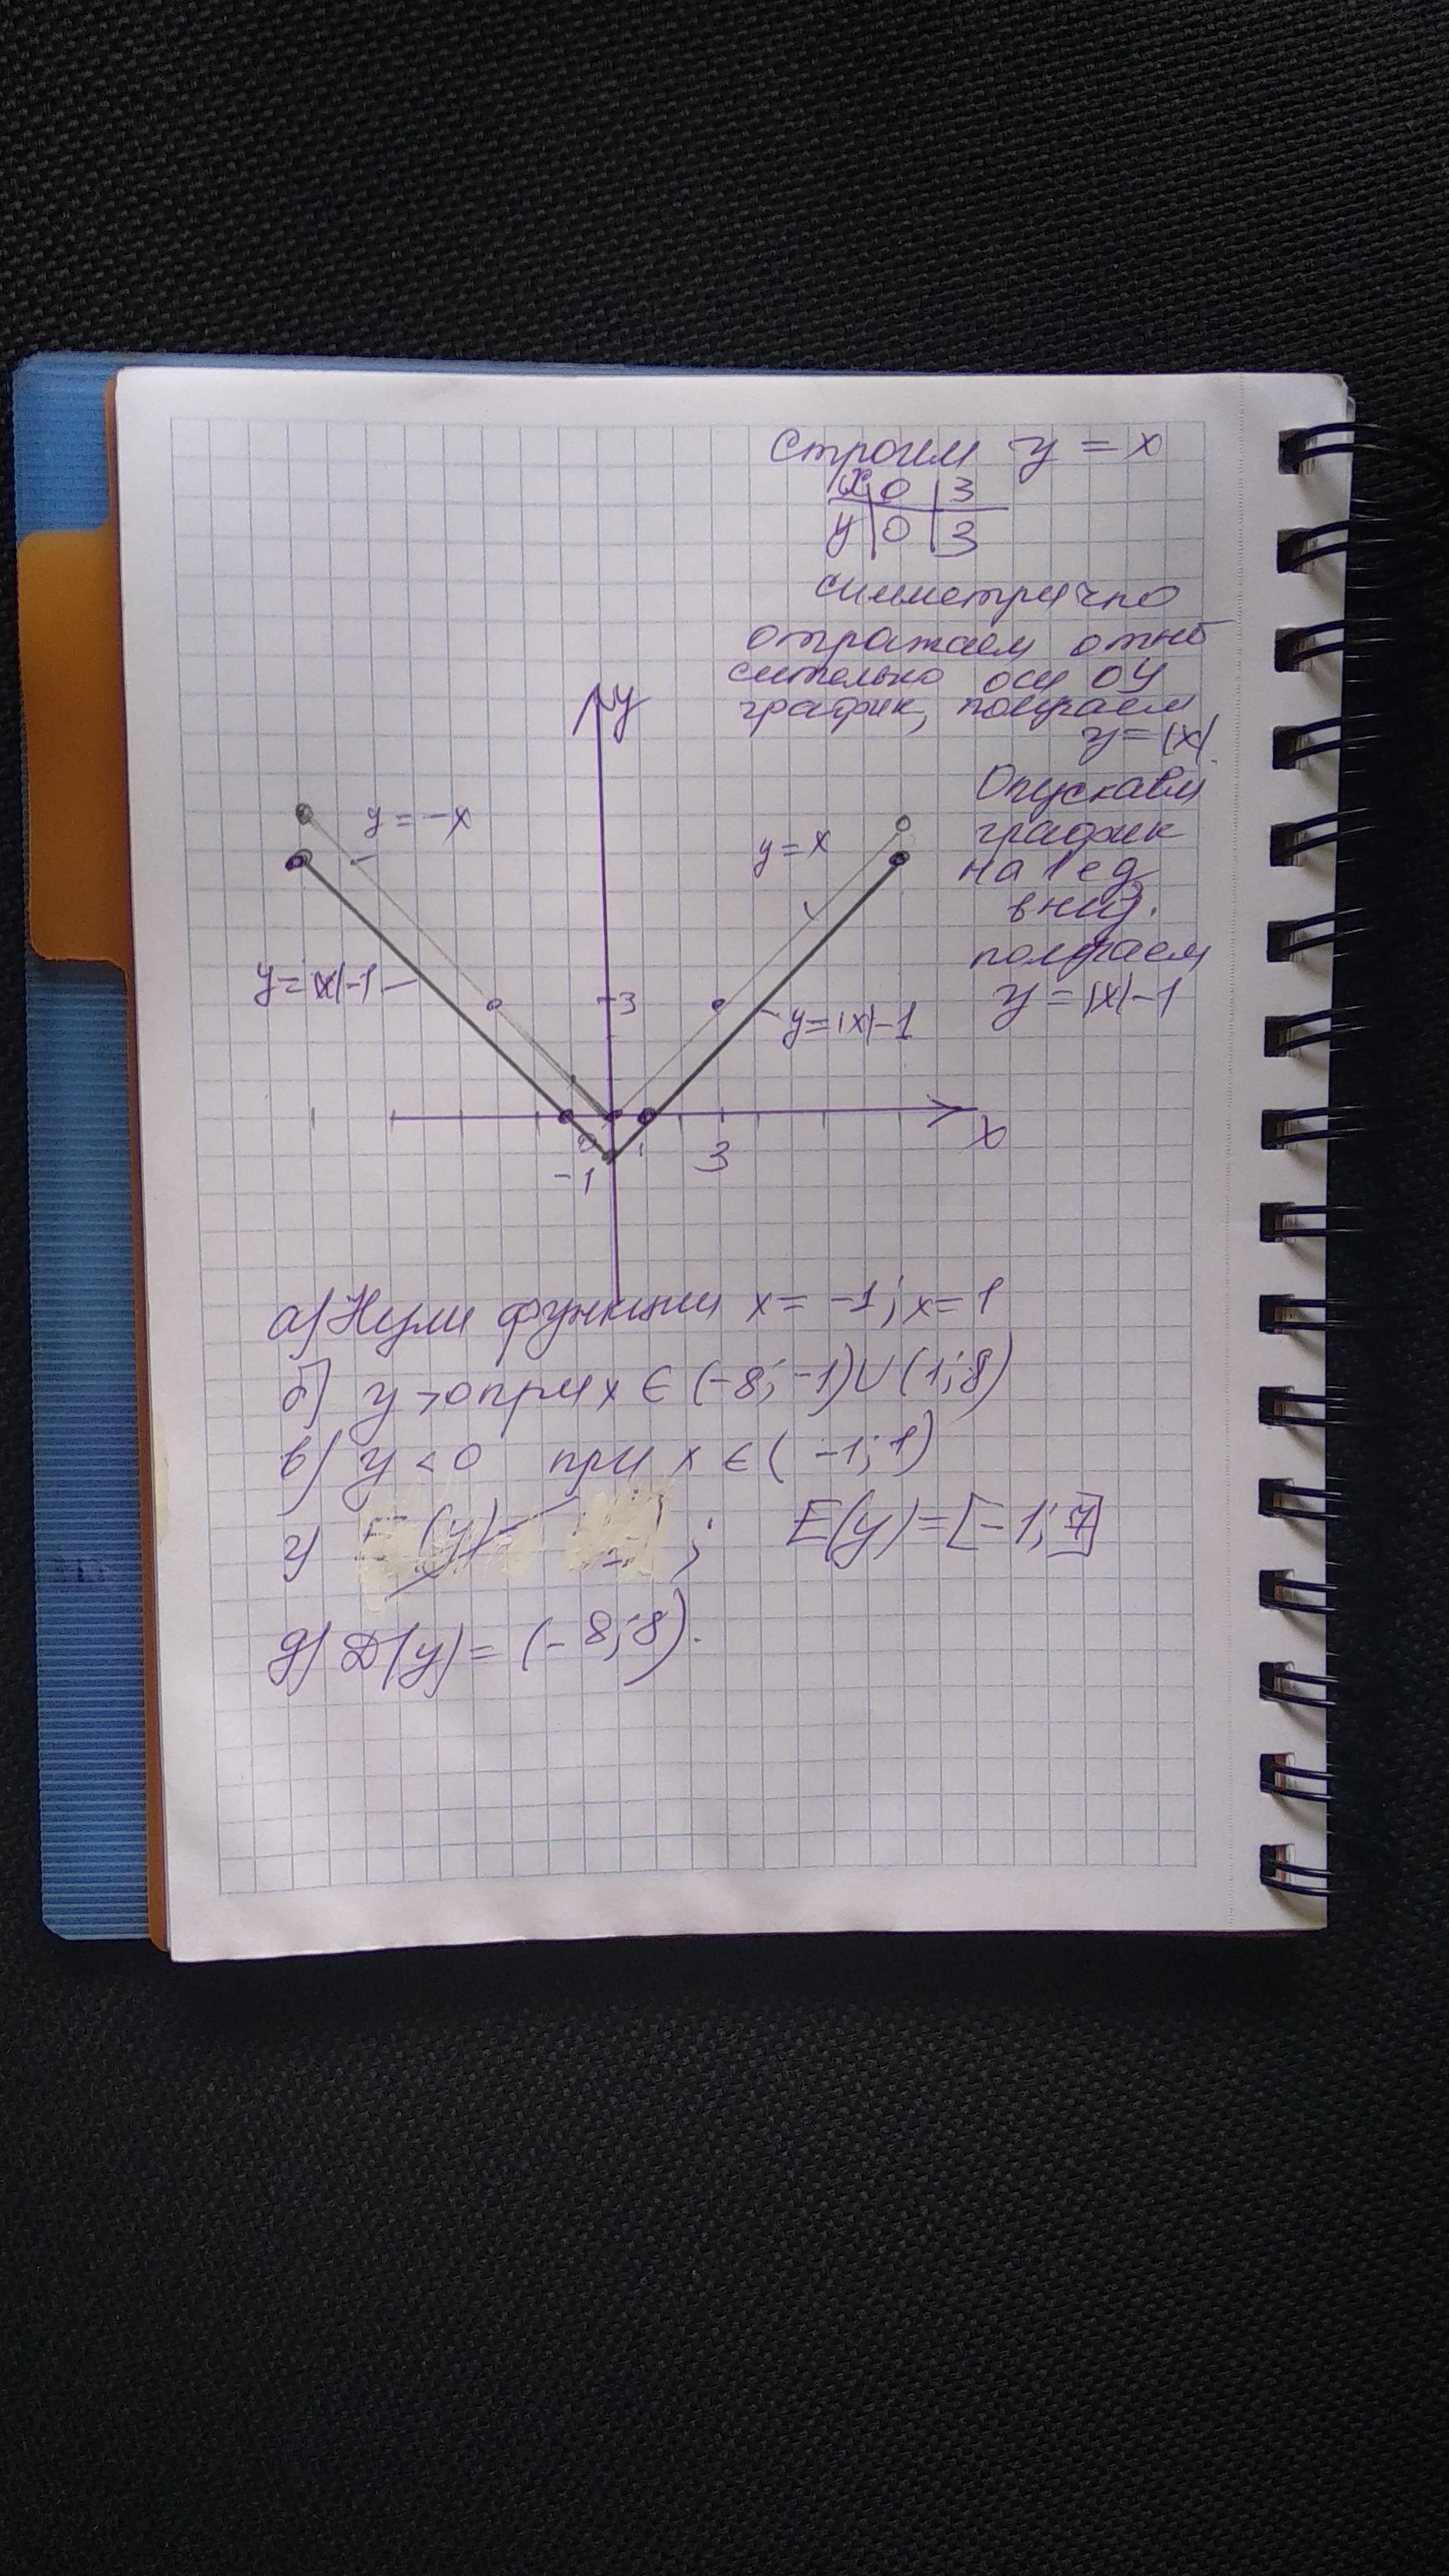 Строим y = x
x 0 3
y 0 3
симметрично
отражаем отно
сительно оси ОУ
график, получаем
y = |x|
Опускаем
график
на 1 ед
вниз.
получаем
y = |x|-1
y
y = -x
y = x
y = |x|-1
3
y = |x|-1
x
0
1
3
-1
а) Нули функции x = -1; x = 1
б) y > 0 при x ∈ (-8; -1) ∪ (1; 8)
в) y < 0 при x ∈ (-1; 1)
г) ; E(y) = [-1; 7]
д) D(y) = (-8; 8).